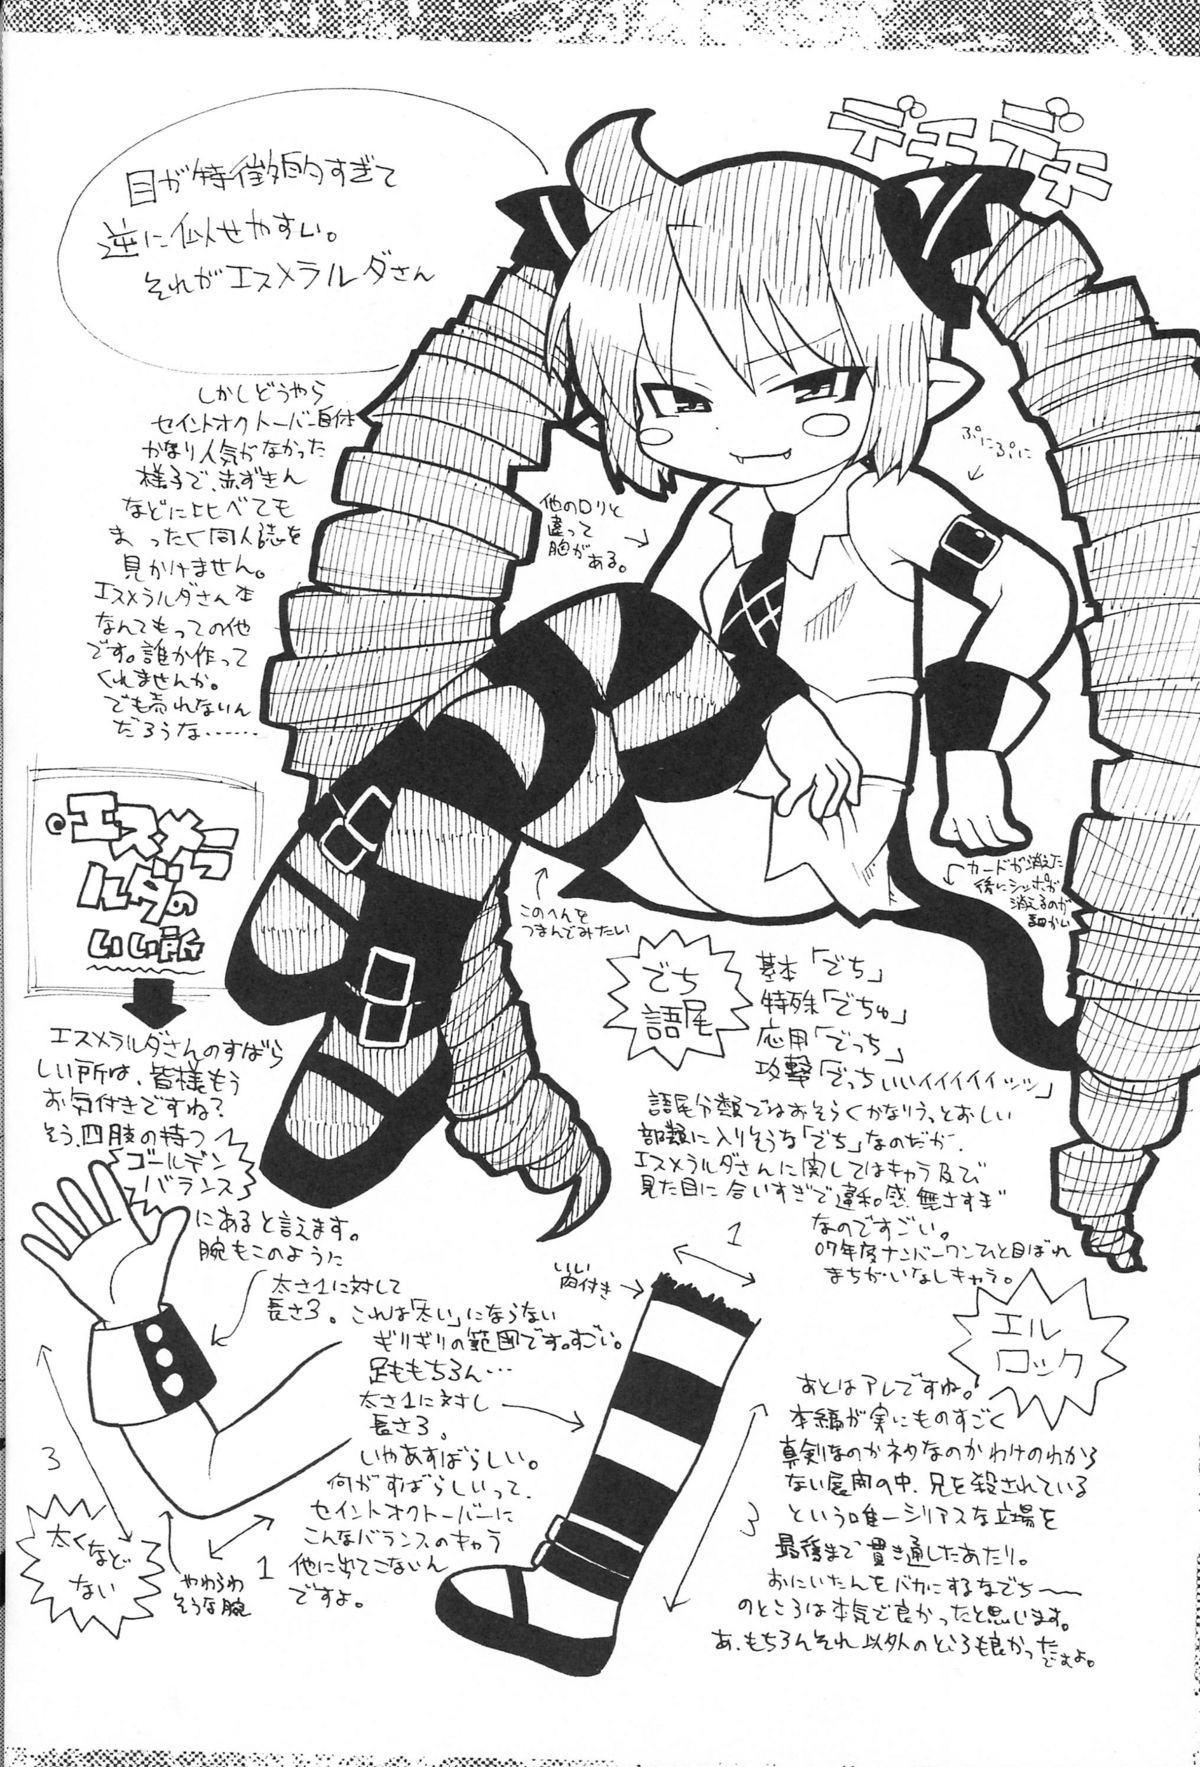 目が特徴的すぎて
逆に似せやすい。
それがエスメラルダさん
デチデチ
しかしどうやら
セイントオクトーバー自体
かなり人気がなかった
様子で、赤ずきん
などに比べても
まったく同人誌を
見かけません。
エスメラルダさん本
なんてもっての他
です。誰か作って
くれませんか。
でも売れないん
だろうな……
ぷにぷに
他のロリと
違って
胸がある。
カードが消えた
後にシッポが
消えるのが
細かい
このへんを
つまんでみたい
エスメラ
ルダの
いい所
エスメラルダさんのすばら
しい所は、皆様もう
お気付きですね?
そう、四肢の持つ
ゴールデン
バランス
にあると言えます。
腕もこのように
太さ1に対して
長さ3。これは「太い」にならない
ギリギリの範囲です。すごい。
足ももちろん…
太さ1に対し
長さ3。
いやあすばらしい。
何がすばらしいって、
セイントオクトーバーに
こんなバランスのキャラ
他に出てこないん
ですよ。
3
1
太くなど
ない
やわらか
そうな腕
でち
語尾
基本「でち」
特殊「でちゅ」
応用「でっち」
攻撃「でっちぃぃィィィィィッッ」
語尾分類ではおそらくかなりうっとおしい
部類に入りそうな「でち」なのだが、
エスメラルダさんに関してはキャラ及び
見た目に合いすぎで違和感無さすぎ
なのですごい。
07年度ナンバーワンひと目ぼれ
まちがいなしキャラ。
いい
肉付き
1
3
エル
ロック
あとはアレですね。
本編が実にものすごく
真剣なのかネタなのかわけのわから
ない展開の中、兄を殺されている
という唯一シリアスな立場を
最後まで貫き通したあたり。
おにいたんをバカにするなでち〜
のところは本気で良かったと思います。
あ、もちろんそれ以外のところも良かったですよ。